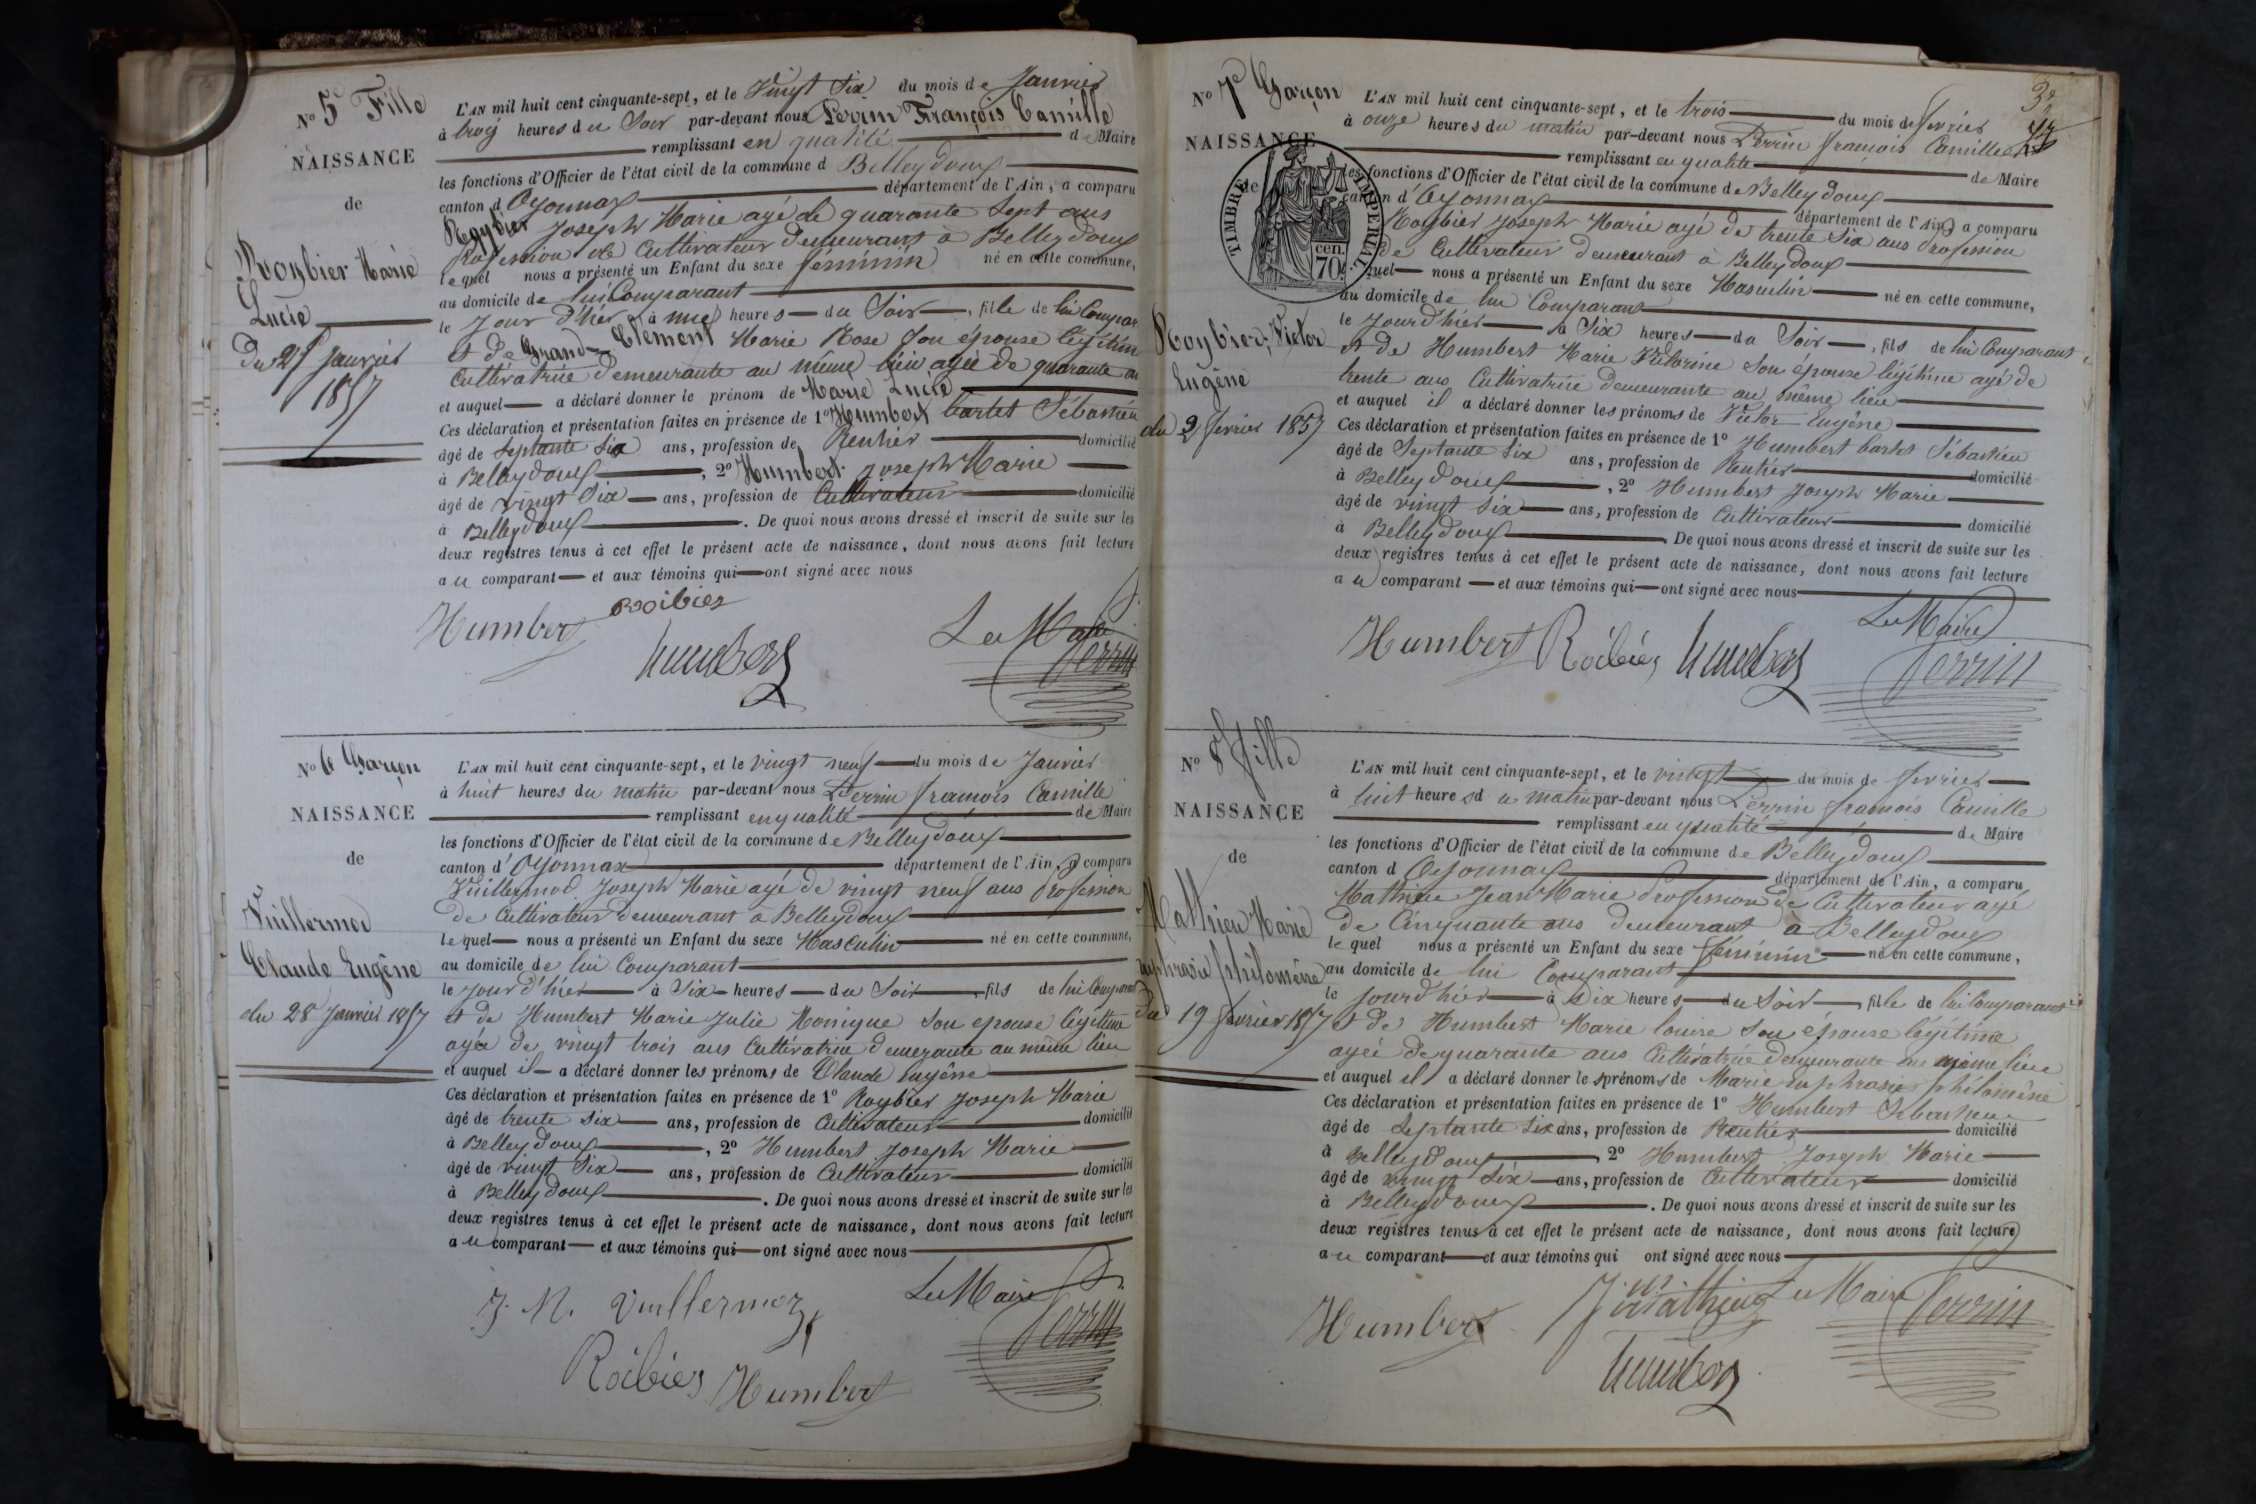 No 5e Fille
NAISSANCE
de
Roybier Marie
Lucie
Du 25 Janvier
1857
L'AN mil huit cent cinquante-sept, et le Vingt Six du mois de Janvier
à trois heures du Soir par-devant nous Perrin François Camille
remplissant en qualité de Maire
les fonctions d'Officier de l'état civil de la commune d Belleydoux
canton d Oyonnax département de l'Ain, a comparu
Roybier Joseph Marie agé de quarante Sept ans
Profession de Cultivateur demeurant à Belleydoux
lequel nous a présenté un Enfant du sexe féminin né en cette commune,
au domicile de lui Comparant
le Jour d'hier à une heures du Soir, fille de lui Compar
et de Grand-Clément Marie Rose Son épouse légitim
Cultivatrice demeurante au même lieu agée de quarante an
et auquel a déclaré donner le prénom de Marie Lucie
Ces déclaration et présentation faites en présence de 1o Humbert bartet Sébastien
âgé de Septante Six ans, profession de Rentier domicilié
à Belleydoux, 2o Humbert Joseph Marie
âgé de vingt Six ans, profession de Cultivateur domicilié
à Belleydoux. De quoi nous avons dressé et inscrit de suite sur les
deux registres tenus à cet effet le présent acte de naissance, dont nous avons fait lecture
au comparant et aux témoins qui ont signé avec nous
Humbert Roibier
humbert
Le Maire
Perrin
No 6 Garçon
NAISSANCE
de
Vuillermod
Claude Eugène
du 28 Janvier 1857
L'AN mil huit cent cinquante-sept, et le vingt neuf du mois de Janvier
à huit heures du matin par-devant nous Perrin françois Camille
remplissant en qualité de Maire
les fonctions d'Officier de l'état civil de la commune de Belleydoux
canton d'Oyonnax département de l'Ain, a comparu
Vuillermod Joseph Marie agé de vingt neuf ans Profession
de Cultivateur demeurant à Belleydoux
lequel nous a présenté un Enfant du sexe Masculin né en cette commune,
au domicile de lui Comparant
le jour d'hier à Six heures du Soir, fils de lui Comparant
et de Humbert Marie Julie Monique Son épouse légitime
agée de vingt trois ans Cultivatrice demeurante au même lieu
et auquel il a déclaré donner les prénoms de Claude Eugène
Ces déclaration et présentation faites en présence de 1o Roybier Joseph Marie
âgé de trente Six ans, profession de Cultivateur domicilié
à Belleydoux, 2o Humbert Joseph Marie
âgé de vingt Six ans, profession de Cultivateur domicilié
à Belleydoux. De quoi nous avons dressé et inscrit de suite sur les
deux registres tenus à cet effet le présent acte de naissance, dont nous avons fait lecture
au comparant et aux témoins qui ont signé avec nous
J. M. Vuillermoz
Le Maire
Perrin
Roibier Humbert
No 7e Garçon
NAISSANCE
de
TIMBRE IMPERIAL
70 cen.
Roybier, Victor
Eugène
du 2 février 1857
L'AN mil huit cent cinquante-sept, et le trois du mois de février
à onze heures du matin par-devant nous Perrin françois Camille
remplissant en qualité de Maire
les fonctions d'Officier de l'état civil de la commune de Belleydoux
canton d'Oyonnax département de l'Ain, a comparu
Roybier Joseph Marie agé de trente Six ans Profession
de Cultivateur demeurant à Belleydoux
lequel nous a présenté un Enfant du sexe Masculin né en cette commune,
au domicile de lui Comparant
le jourd'hier à Six heures du Soir, fils de lui Comparant
et de Humbert Marie Victorine Son épouse légitime agé de
trente ans Cultivatrice demeurante au même lieu
et auquel il a déclaré donner les prénoms de Victor Eugène
Ces déclaration et présentation faites en présence de 1o Humbert bartet Sébastien
âgé de Septante Six ans, profession de Rentier domicilié
à Belleydoux, 2o Humbert Joseph Marie
âgé de vingt Six ans, profession de Cultivateur domicilié
à Belleydoux. De quoi nous avons dressé et inscrit de suite sur les
deux registres tenus à cet effet le présent acte de naissance, dont nous avons fait lecture
au comparant et aux témoins qui ont signé avec nous
Le Maire
Humbert Roibier humbert Perrin
No 8 fille
NAISSANCE
de
Mathieu Marie
Euphrasie philomène
du 19 février 1857
L'AN mil huit cent cinquante-sept, et le vingt du mois de février
à huit heures du matin par-devant nous Perrin françois Camille
remplissant en qualité de Maire
les fonctions d'Officier de l'état civil de la commune de Belleydoux
canton d Oyonnax département de l'Ain, a comparu
Mathieu Jean Marie Profession de Cultivateur agé
de Cinquante ans demeurant à Belleydoux
lequel nous a présenté un Enfant du sexe féminin né en cette commune,
au domicile de lui Comparant
le jourd'hier à Dix heures du Soir, fille de lui Comparant
et de Humbert Marie louise Son épouse légitime
agée de quarante ans Cultivatrice demeurante au même lieu
et auquel il a déclaré donner les prénoms de Marie Euphrasie philomène
Ces déclaration et présentation faites en présence de 1o Humbert Sébastien
âgé de Septante Six ans, profession de Rentier domicilié
à Belleydoux, 2o Humbert Joseph Marie
âgé de vingt Six ans, profession de Cultivateur domicilié
à Belleydoux. De quoi nous avons dressé et inscrit de suite sur les
deux registres tenus à cet effet le présent acte de naissance, dont nous avons fait lecture
au comparant et aux témoins qui ont signé avec nous
Humbert J. M. Mathieu Le Maire Perrin
humbert